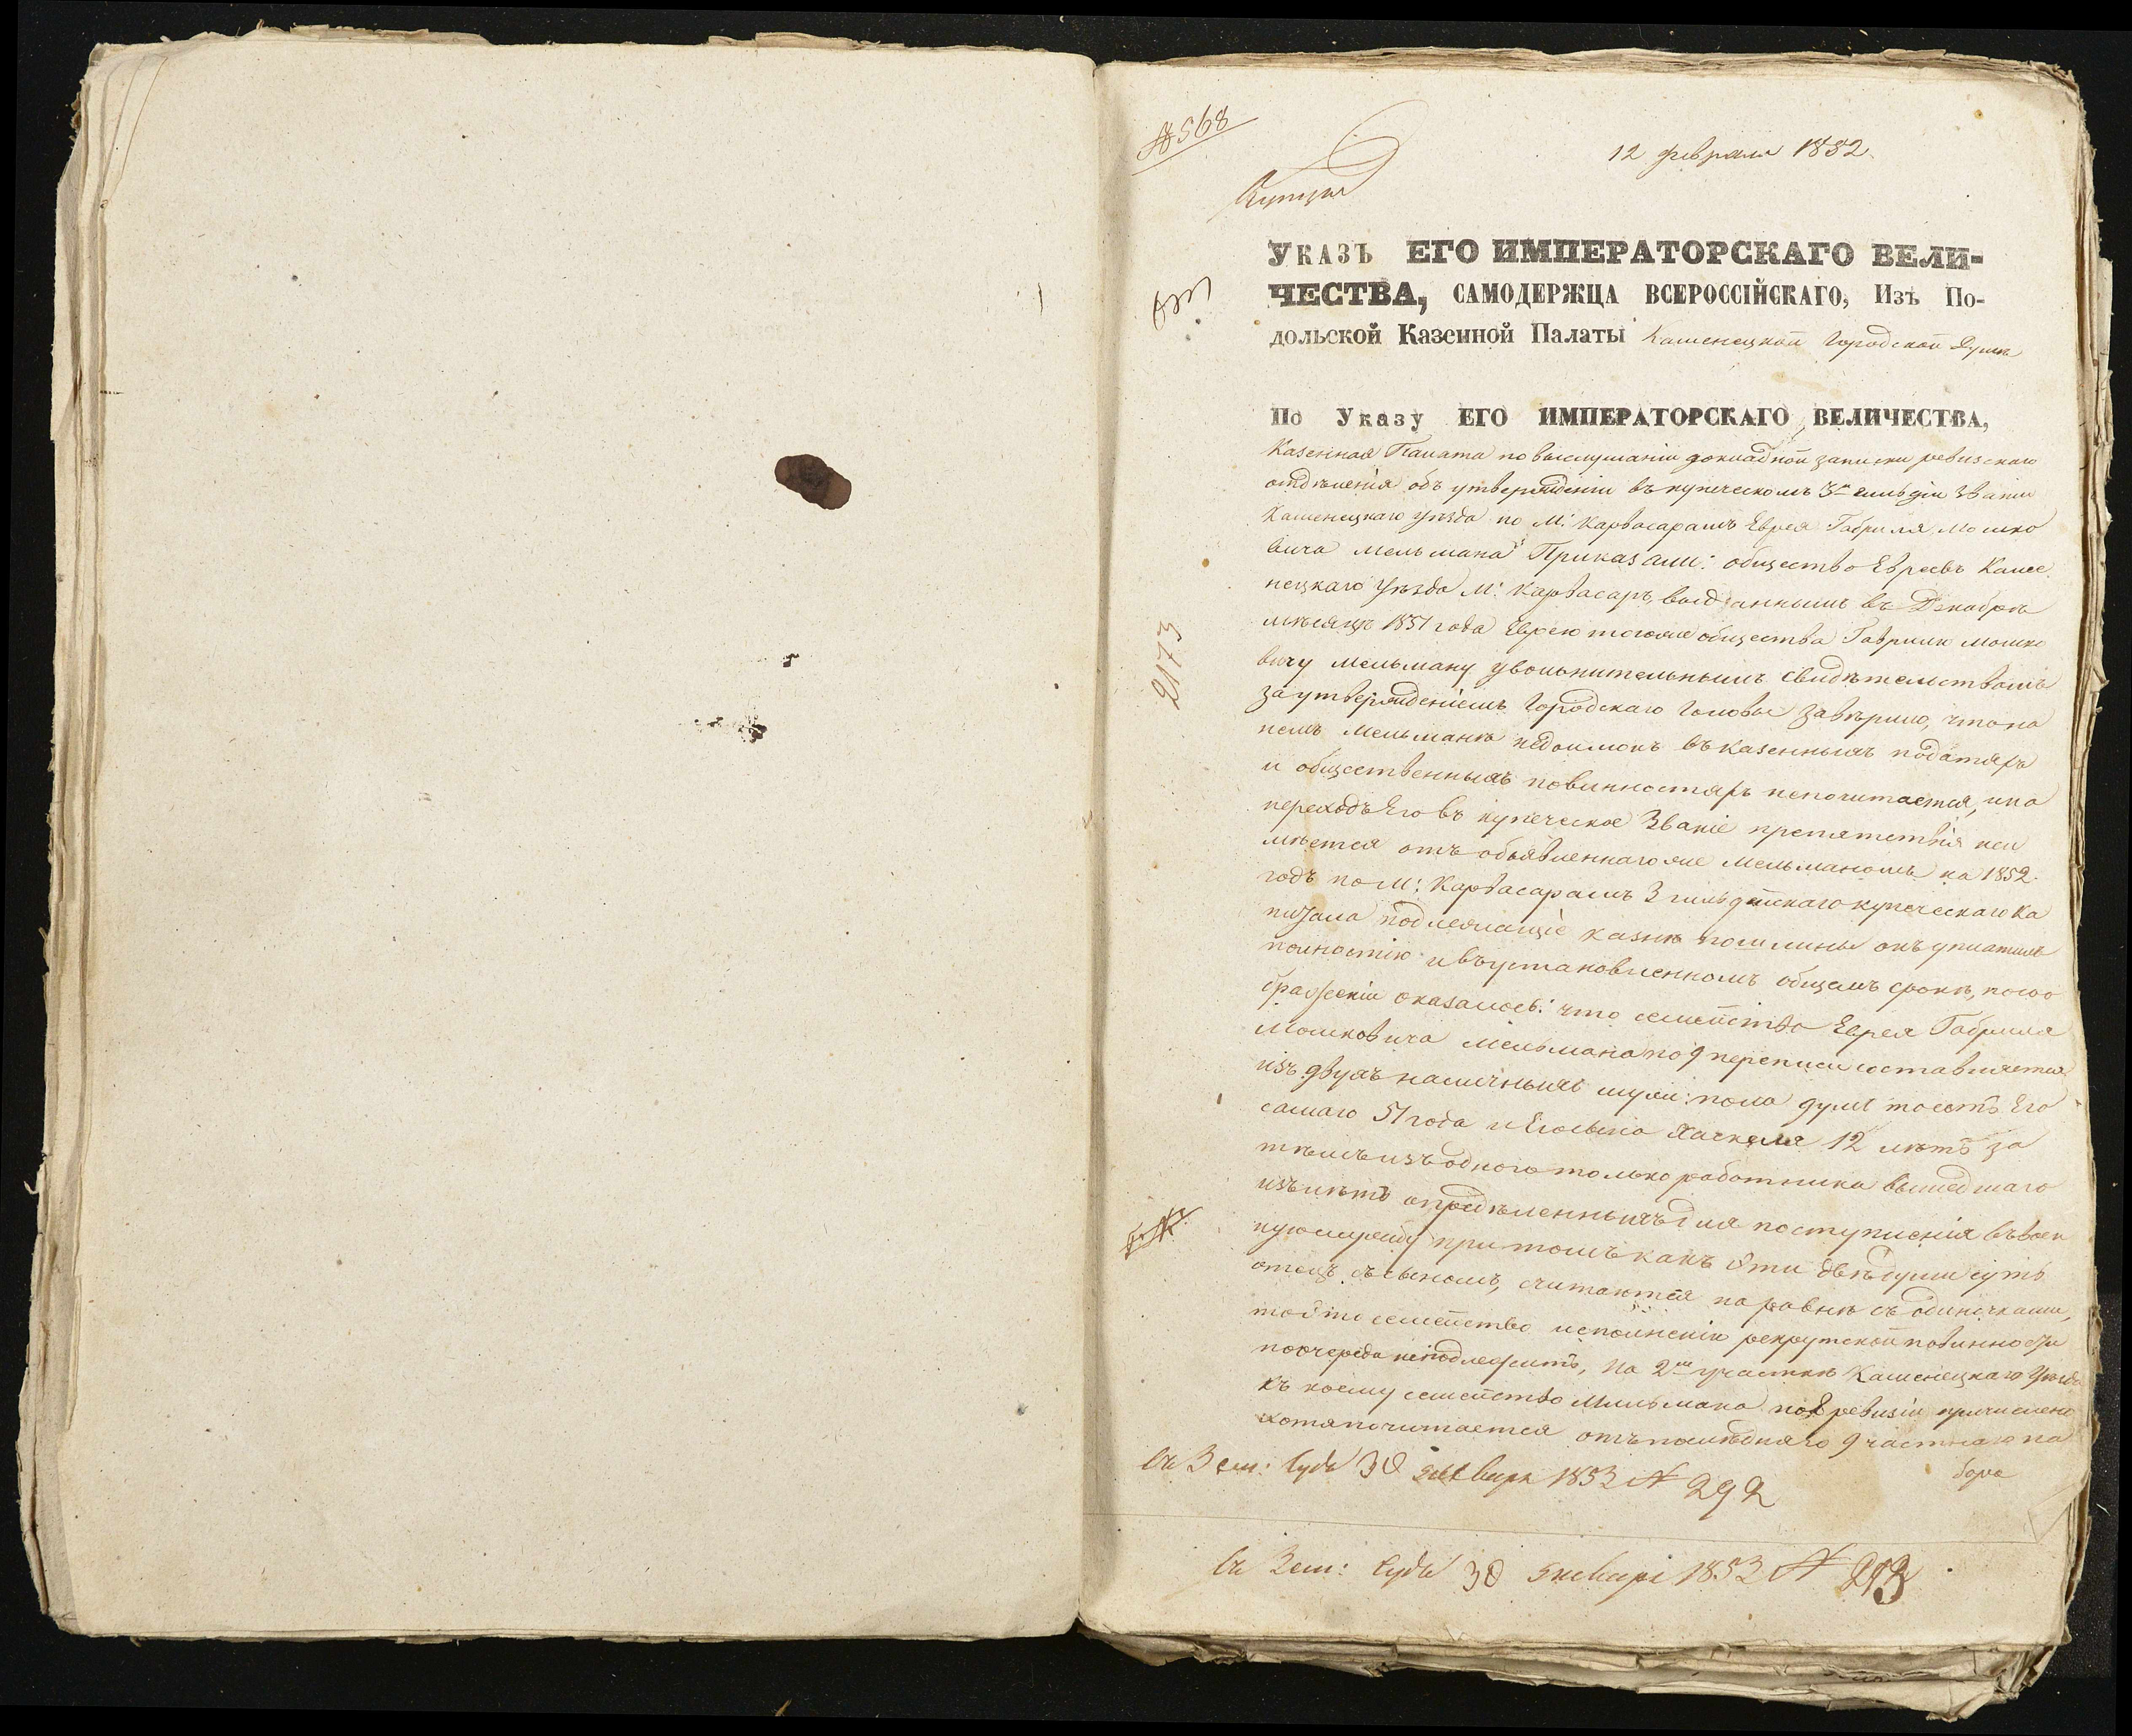 № 568
12 февраля 1852.
Купцы
УКАЗЪ ЕГО ИМПЕРАТОРСКАГО ВЕЛИ-
ЧЕСТВА, САМОДЕРЖЦА ВСЕРОССІЙСКАГО, Изъ По-
дольской Казенной Палаты Каменецкой Городской Думѣ
По Указу ЕГО ИМПЕРАТОРСКАГО ВЕЛИЧЕСТВА,
Казенная Палата по выслушаніи докладной записки ревизскаго
отдѣленія объ утвержденіи въ купеческомъ 3й гильдіи званіи
Каменецкаго уѣзда по М: Карвасарамъ Еврея Гавриля Мошко
вича Мельмана Приказали: общество Евреевъ Каме
нецкаго Уѣзда М: Карвасаръ, выданнымъ въ Декабрѣ
мѣсяцѣ 1851 года Еврею тогоже общества Гаврилю Мошко
вичу Мельману увольнительнымъ свидѣтельствомъ
за утвержденіемъ Городскаго Головы завѣрило, что на
немъ Мельманѣ недоимокъ въ казенныхъ податяхъ
и общественныхъ повинностяхъ непочитается, и на
переходъ Его въ купеческое званіе препятствія неи
мѣется отъ объявленнаго же Мельманомъ на 1852.
годъ по М: Карвасарамъ 3 гильдейскаго купеческаго Ка
питала подлежащіе казнѣ пошлины онъ уплатилъ
полностію и въ установленномъ общемъ срокѣ, по соо
браженіи оказалось: что семейство Еврея Гавриля
Мошковича Мельмана по 9 переписи составляется
изъ двухъ наличныхъ муж: пола душъ тоесть Его
самаго 51 года и Его сына Хаскеля 12 лѣтъ за
тѣмъ изъ одного только работника вышедшаго
изъ лѣтъ опредѣленныхъ для поступленія въ воен
ную службу притомъ какъ эти двѣ души суть
отецъ съ сыномъ, считаются наравнѣ съ одиночками,
то это семейство исполненію рекрутской повинности
по очереди неподлежитъ, на 2мъ участкѣ Каменецкаго Уѣзда
къ коему семейство Мельмана по 8 ревизіи причислено
хотя почитается отъ послѣдняго 9 частнаго на
бора
2173
въ Зем: Судъ 30 Января 1853 № 292
въ Зем: Судъ 30 Января 1853 №